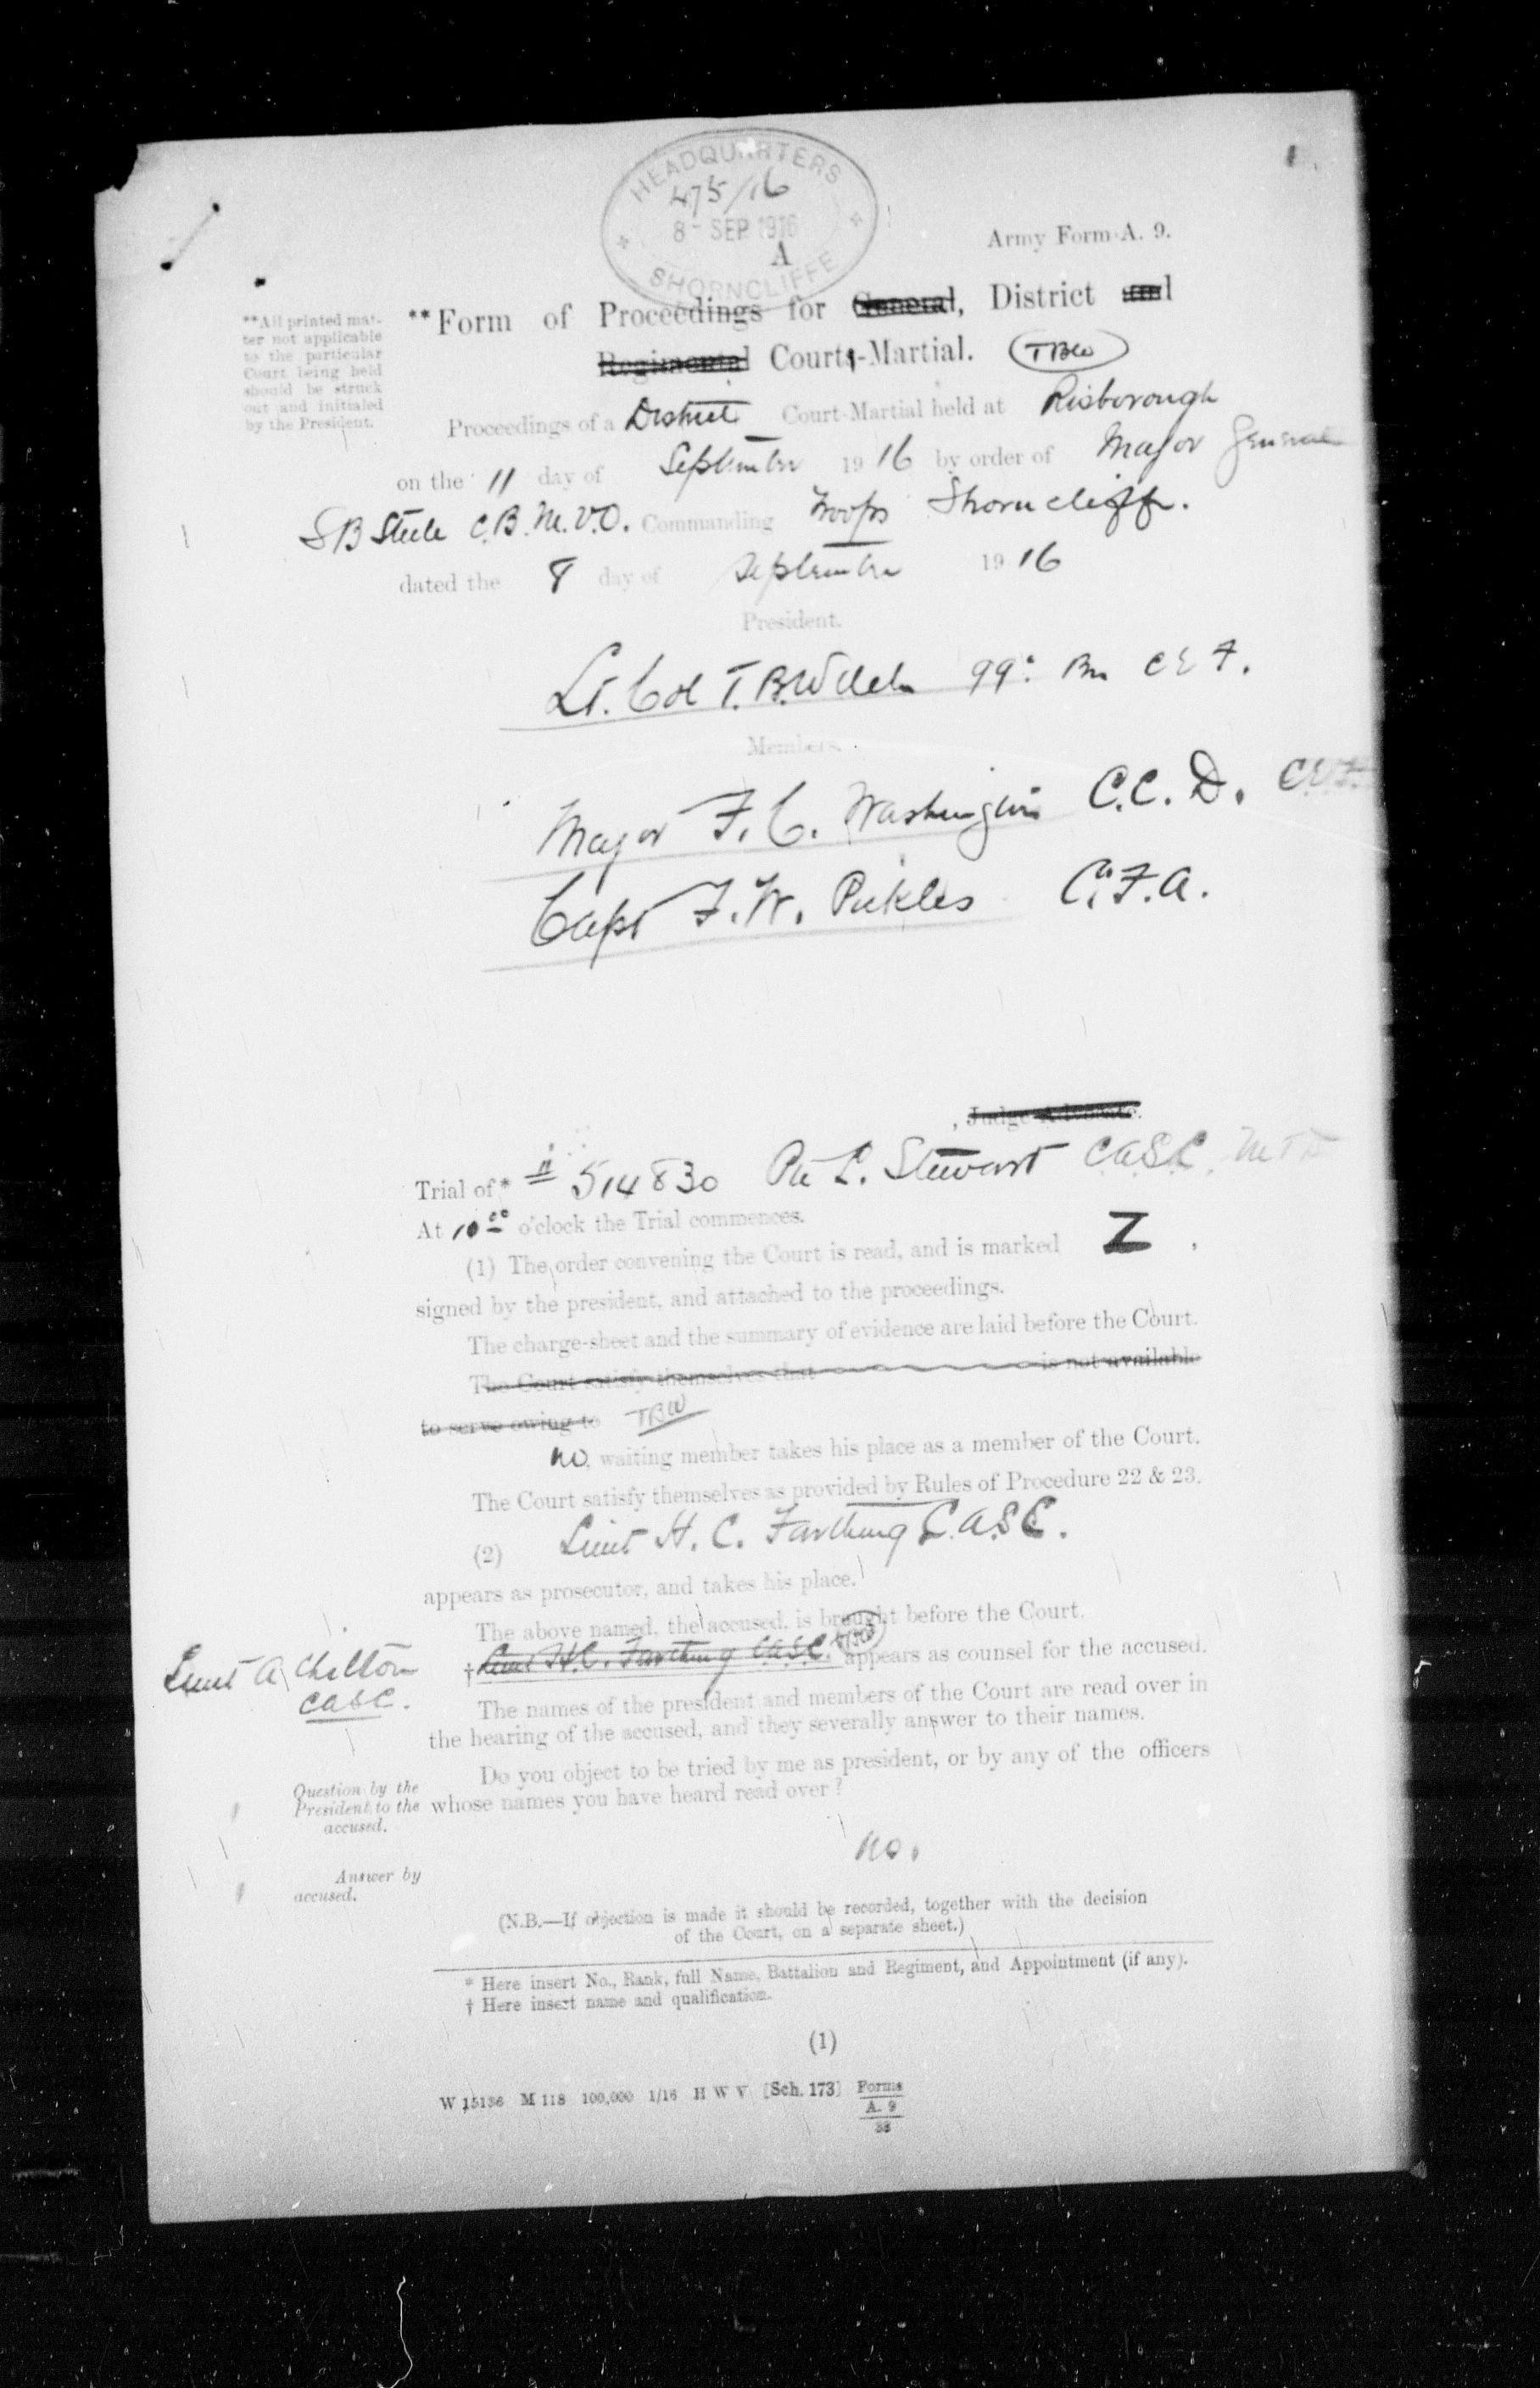 HEADQUARTERS
475/16
8 - SEP 1916
A
SHORNCLIFFE
1
Army Form A. 9.
**All printed mat-
ter not applicable
to the particular
Court being held
should be struck
out and initialed
by the President.
**Form of Proceedings for General, District and
Regimental Courts-Martial. TBW
Proceedings of a District Court-Martial held at Risborough
on the 11 day of September 1916 by order of Major General
S B Steele C.B. M.V.O. Commanding Troops Shorncliffe.
dated the 8 day of September 1916
President.
Lt. Col T. B. Welch 99th Bn C E F.
Members.
Major F. C. Washington C.C.D. C.E.F.
Capt F. W. Pickles C.F.A.
, Judge Advocate.
Trial of* # 514830 Pte L. Stewart C.A.S.C. M T D
At 10 00 o'clock the Trial commences.
(1) The order convening the Court is read, and is marked Z ,
signed by the president, and attached to the proceedings.
The charge-sheet and the summary of evidence are laid before the Court.
The Court satisfy themselves that is not available
to serve owing to TBW
no, waiting member takes his place as a member of the Court.
The Court satisfy themselves as provided by Rules of Procedure 22 & 23.
(2) Lieut H. C. Farthing C.A.S.C.
appears as prosecutor, and takes his place.
The above named, the accused, is brought before the Court.
Lieut A Chilton
CASC.
†Lieut H.C. Farthing C.A.S.C. TBW appears as counsel for the accused.
The names of the president and members of the Court are read over in
the hearing of the accused, and they severally answer to their names.
Question by the
President to the
accused.
Do you object to be tried by me as president, or by any of the officers
whose names you have heard read over?
Answer by
accused.
no.
(N.B.—If objection is made it should be recorded, together with the decision
of the Court, on a separate sheet.)
* Here insert No., Rank, full Name, Battalion and Regiment, and Appointment (if any).
† Here insert name and qualification.
(1)
W 15136 M 118 100,000 1/16 H W V [Sch. 173] Forms
A. 9
38